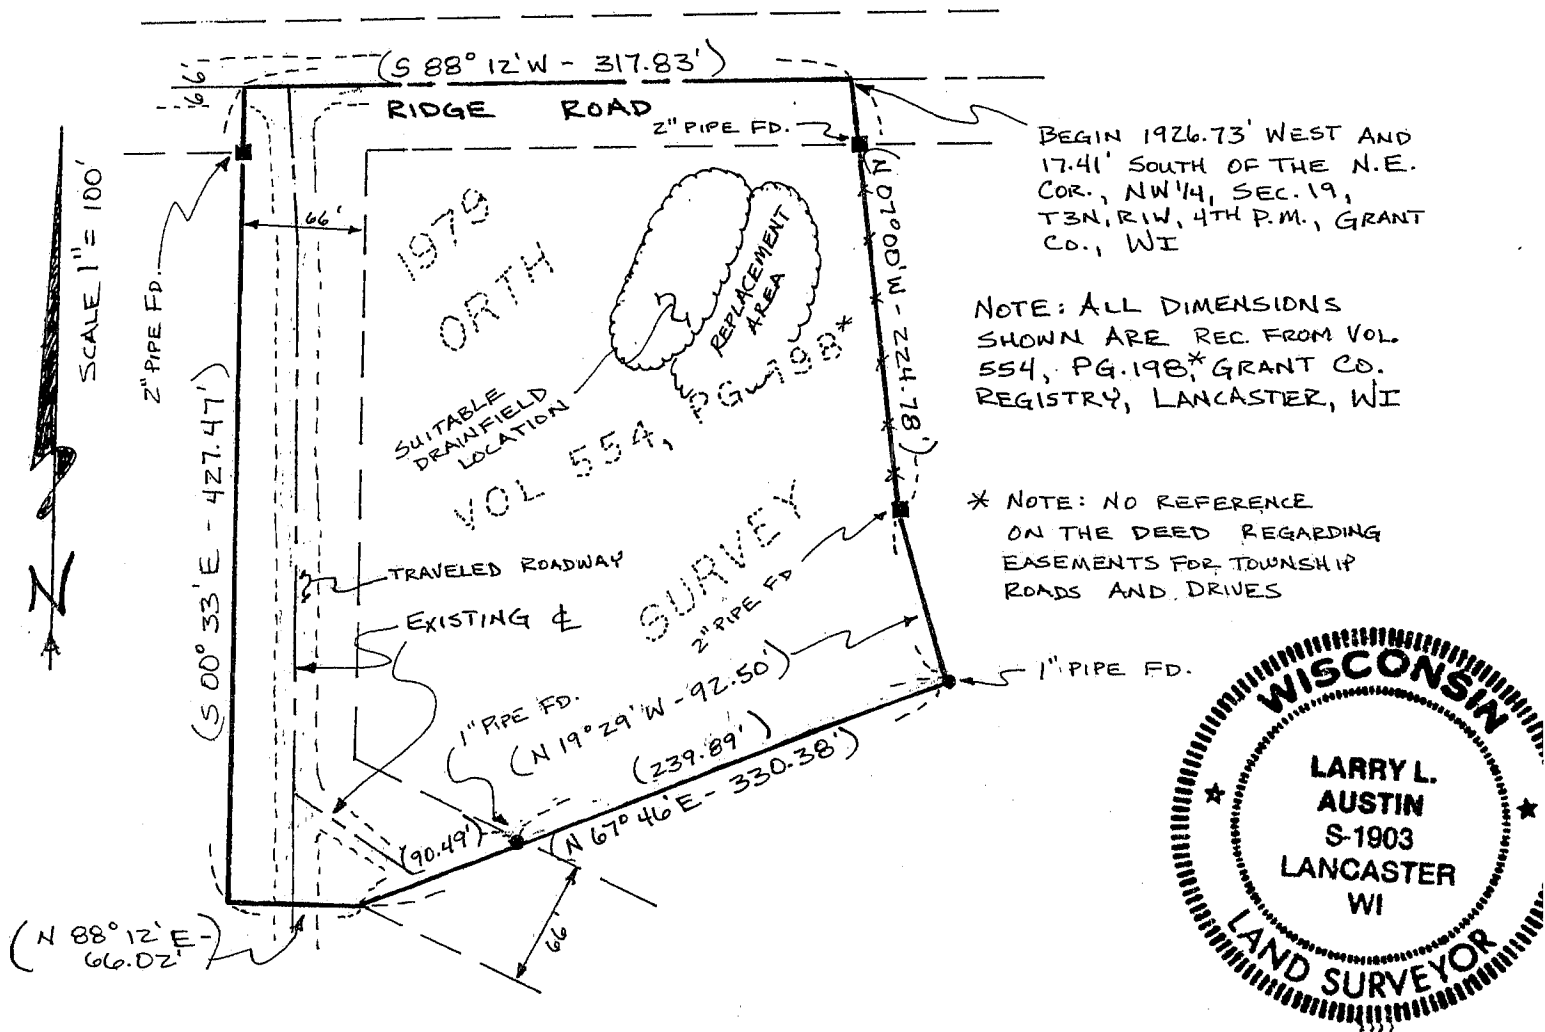 (S 88° 12' W - 317.83')
RIDGE ROAD
66'
2" PIPE FD.
BEGIN 1926.73' WEST AND
17.41' SOUTH OF THE N.E.
COR., NW 1/4, SEC. 19,
T3N, R1W, 4TH P.M., GRANT
CO., WI
SCALE 1" = 100'
N
2" PIPE FD.
66'
1979
ORTH
VOL 554, PG 198*
SURVEY
REPLACEMENT
AREA
SUITABLE
DRAINFIELD
LOCATION
(N 07° 00' W - 224.78')
NOTE: ALL DIMENSIONS
SHOWN ARE REC. FROM VOL.
554, PG. 198,* GRANT CO.
REGISTRY, LANCASTER, WI
* NOTE: NO REFERENCE
ON THE DEED REGARDING
EASEMENTS FOR TOWNSHIP
ROADS AND DRIVES
(S 00° 33' E - 427.47')
TRAVELED ROADWAY
EXISTING ℄
2" PIPE FD
1" PIPE FD.
1" PIPE FD.
(N 19° 29' W - 92.50')
(239.89')
(N 67° 46' E - 330.38')
(90.49')
66'
(N 88° 12' E -
66.02')
WISCONSIN
LARRY L.
AUSTIN
S-1903
LANCASTER
WI
LAND SURVEYOR